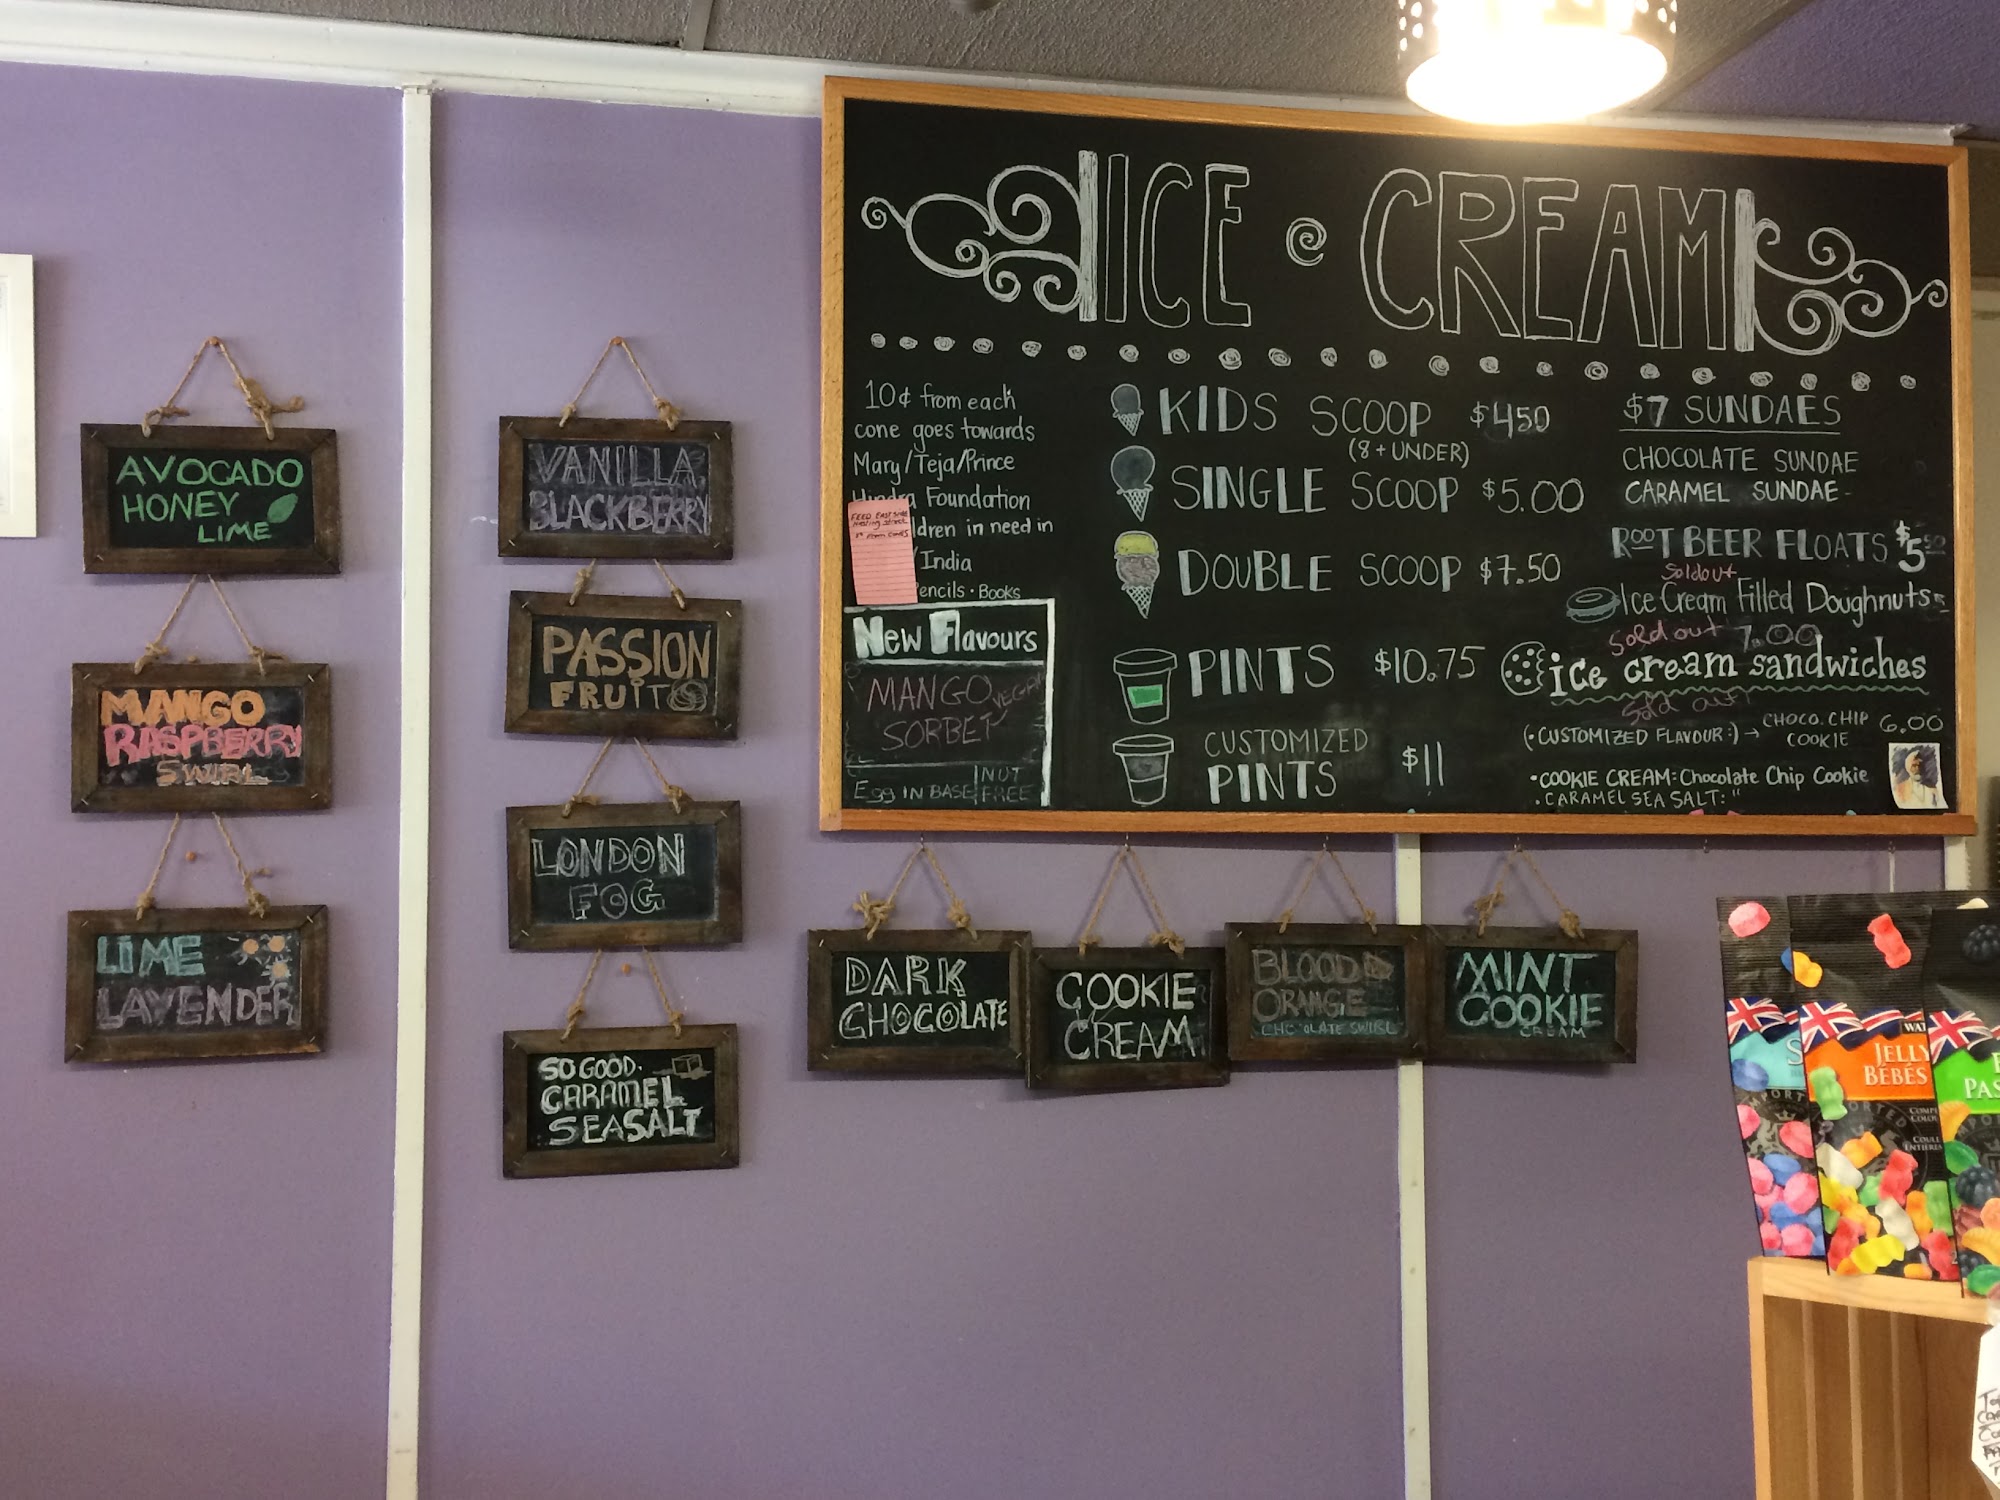 AVOCADO
HONEY
LIME
MANGO
RASPBERRY
SWIRL
LIME
LAVENDER
VANILLA
BLACKBERRY
PASSION
FRUIT
LONDON
FOG
SO GOOD.
CARAMEL
SEASALT
ICE CREAM
10¢ from each
cone goes towards
Mary/Teja/Prince
Foundation
in need in
/India
encils • Books
FEED EAST SIDE
New Flavours
MANGO VEGAN
SORBET
Egg IN BASE
NUT
FREE
KIDS SCOOP $4.50
(8 + UNDER)
SINGLE SCOOP $5.00
DOUBLE SCOOP $7.50
PINTS $10.75
CUSTOMIZED
PINTS $11
$7 SUNDAES
CHOCOLATE SUNDAE
CARAMEL SUNDAE
ROOT BEER FLOATS $5.50
Sold out
Ice Cream Filled Doughnuts
Sold out 7.00
ice cream sandwiches
Sold out
(•CUSTOMIZED FLAVOUR:) → CHOCO. CHIP 6.00
COOKIE
•COOKIE CREAM: Chocolate Chip Cookie
•CARAMEL SEA SALT: "
DARK
CHOCOLATE
COOKIE
CREAM
BLOOD
ORANGE
CHOCOLATE SWIRL
MINT
COOKIE
CREAM
JELLY
BÉBÉS